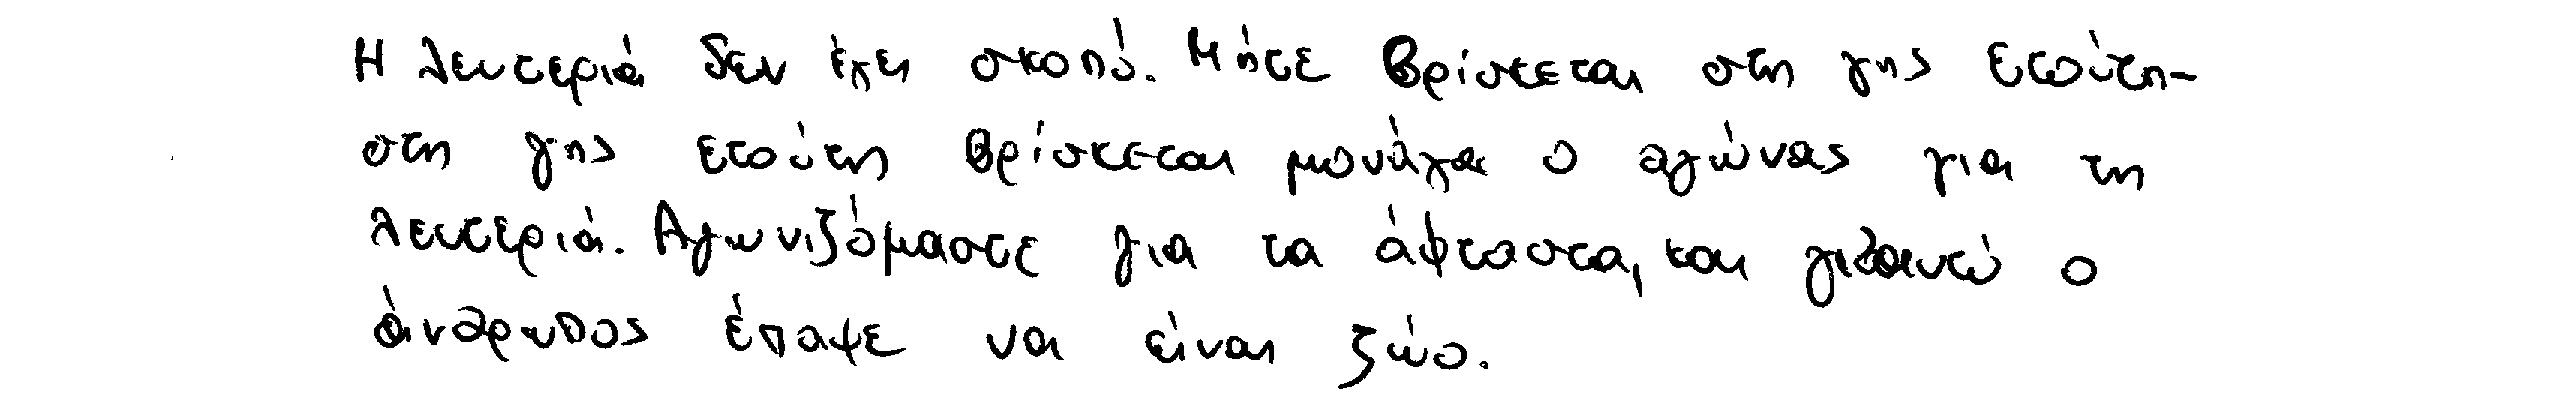 Η λευτεριά δεν έχει σκοπό. Μήτε βρίσκεται στη γης ετούτη-
στη γης ετούτη βρίσκεται μονάχα ο αγώνας για τη
λευτεριά. Αγωνιζόμαστε για τα άφταστα, και γιαυτό ο
άνθρωπος έπαψε να είναι ζώο.